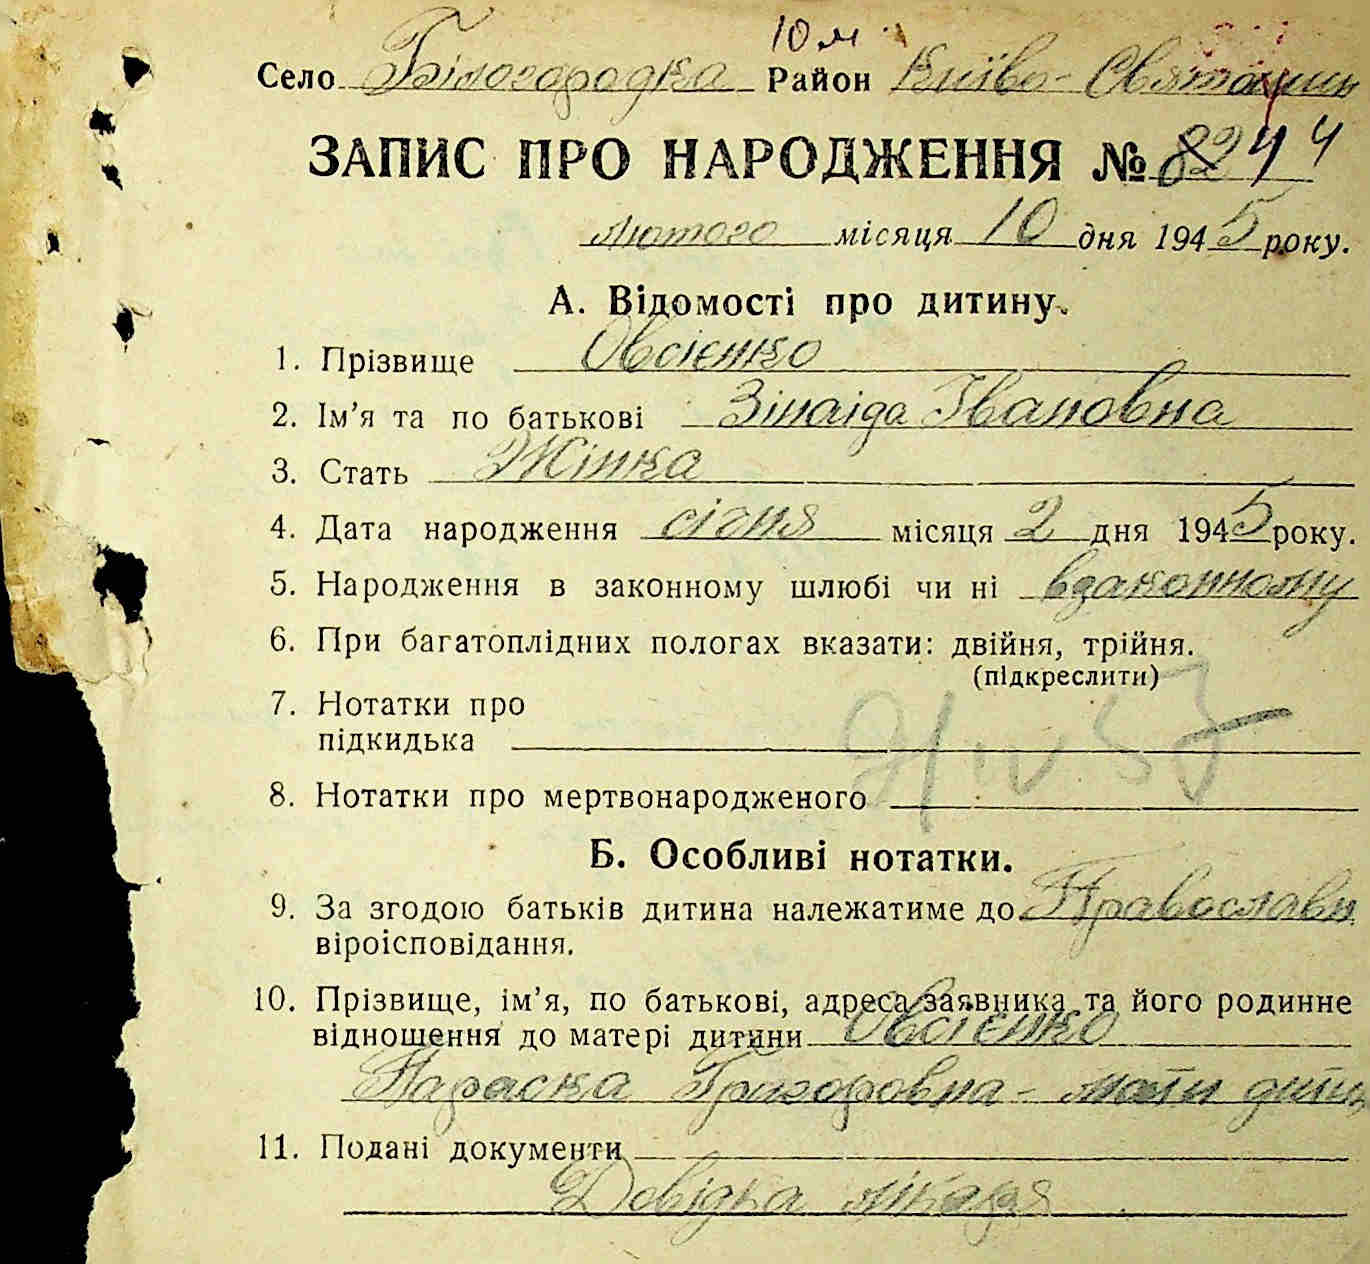 10 м
Село Білогородка Район Київо-Святошин
ЗАПИС ПРО НАРОДЖЕННЯ № 4
лютого місяця 10 дня 1945 року.
А. Відомості про дитину.
1. Прізвище Овсієнко
2. Ім'я та по батькові Зінаіда Івановна
3. Стать Жінка
4. Дата народження січня місяця 2 дня 1945 року.
5. Народження в законному шлюбі чи ні взаконному
6. При багатоплідних пологах вказати: двійня, трійня.
(підкреслити)
7. Нотатки про
підкидька
8. Нотатки про мертвонародженого
Б. Особливі нотатки.
9. За згодою батьків дитина належатиме до Православн
віроісповідання.
10. Прізвище, ім'я, по батькові, адреса заявника та його родинне
відношення до матері дитини Овсієнко
Параска Григоровна - мати дитин
11. Подані документи
Довідка лікаря